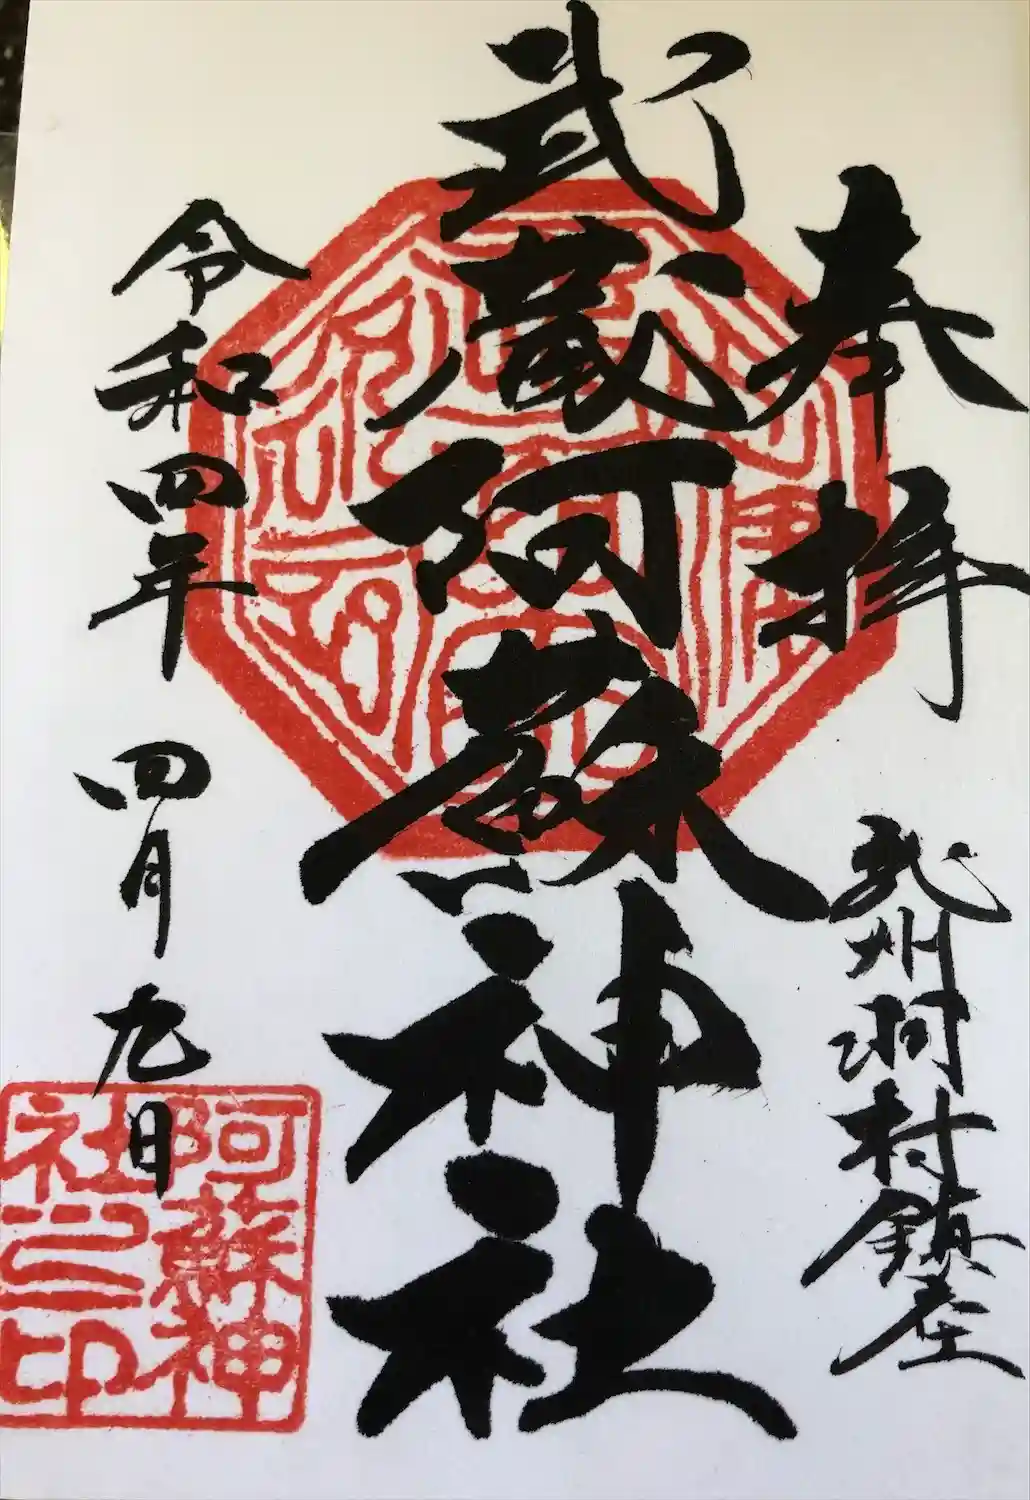 奉拝
武州羽村鎮座
武蔵阿蘇神社
令和四年
四月九日
阿蘇神
社之印